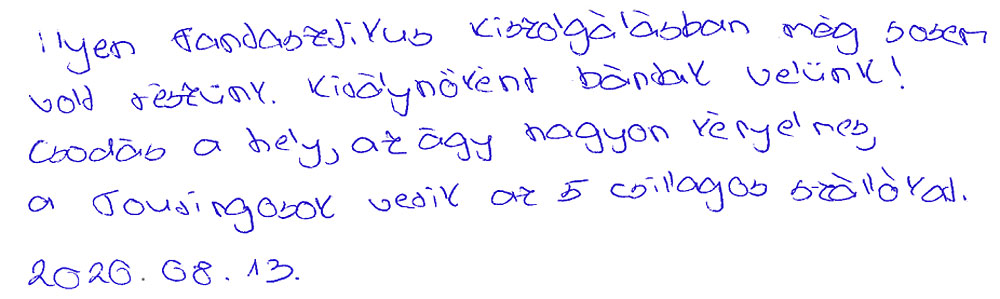 ilyen fantasztikus kiszolgálásban még sosem
volt részünk. Királynőként bántak velünk!
Csodás a hely, az ágy nagyon kényelmes,
a Tousingosok verik az 5 csillagos szállókat.
2020.08.13.